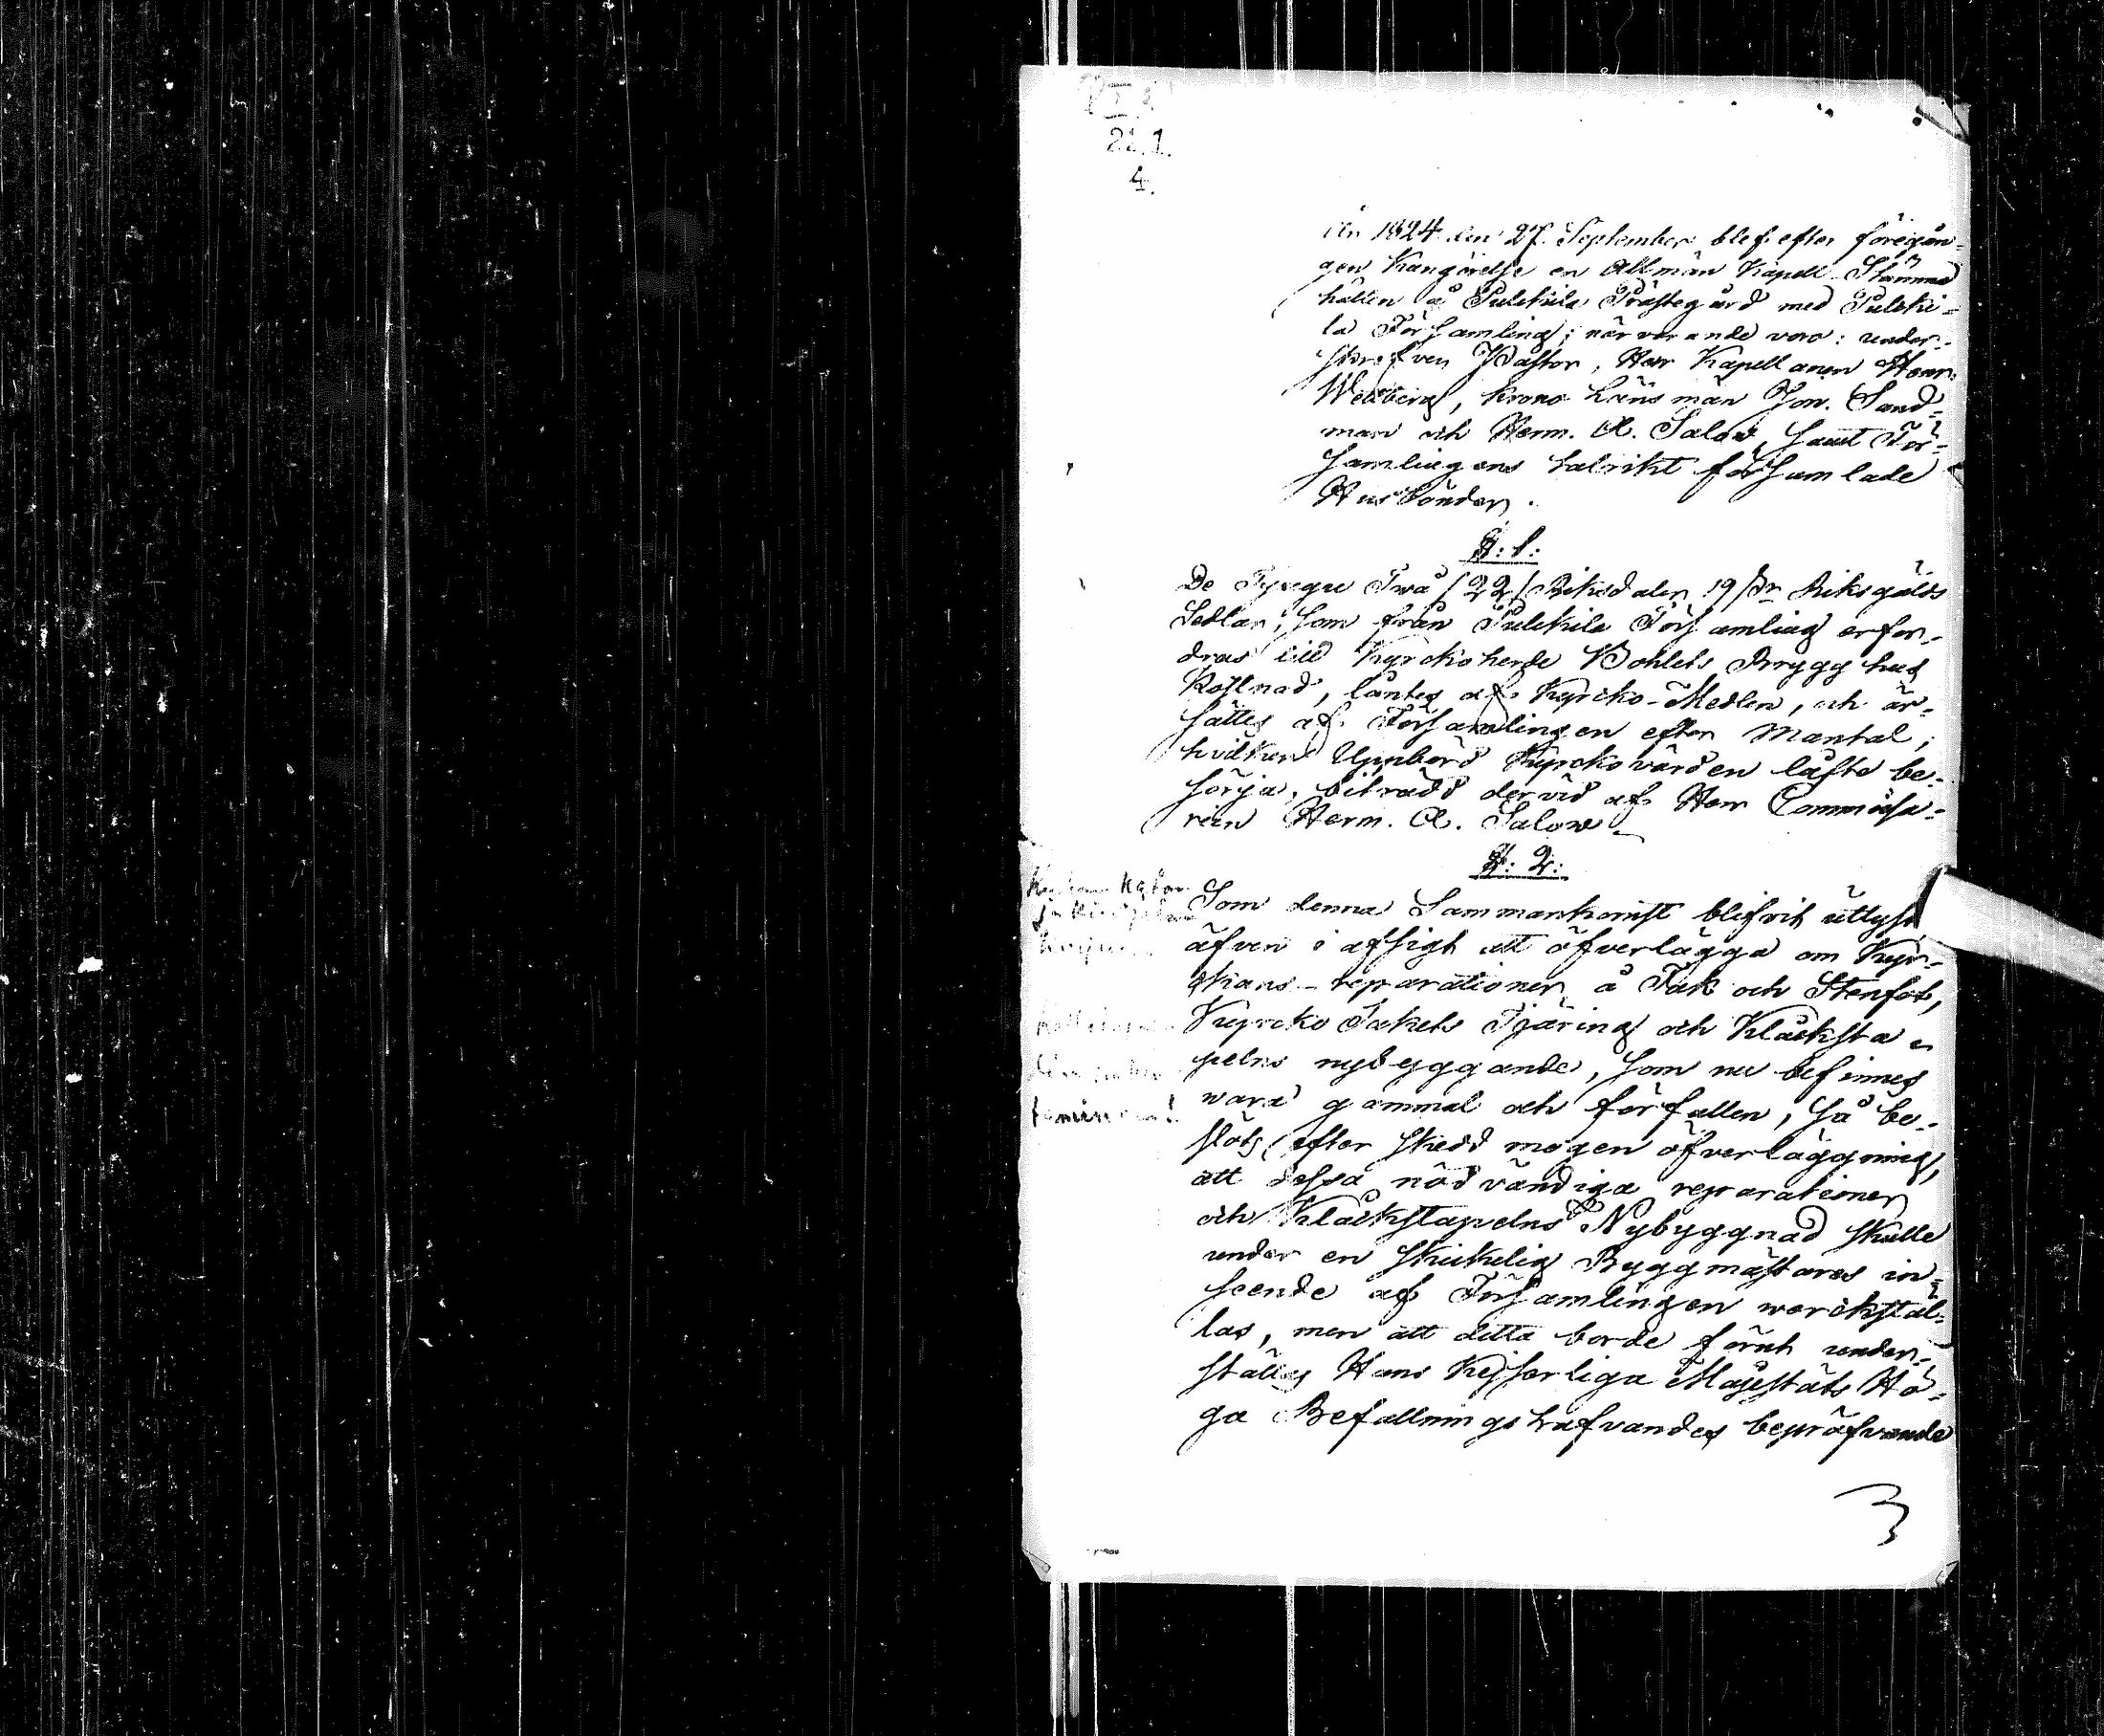 21.1.
4.
År 1824 den 27. September blef efter föregån-
gen Kungörelse en Allmän Kapell-Stämma
hållen å Pulckila Prästegård med Pulcki-
la Församling; närvarande voro: under-
skrefven Pastor, Herr Kapellanen Henr.
Wedberg, Krono Länsman Jon. Sand-
man och Herm. A. Salow, samt För-
samlingens talrikt församlade
Husbönder.
§: 1:
De Tjugu Två /22/ Riksdaler 19 Riksgälds
Sedlar, som från Pulckila Församling erfor-
dras till Kyrckoherde Bohlels Brygghus
Kostnad, låntes af Kyrcko-Medlen, och är-
sättes af Församlingen efter Mantal;
hvilkens Uppbörd Kyrckovärden låfte be-
sörja, biträdd dervid af Herr Commissa-
rien Herm. A. Salow
§: 2:
Som denna Sammankomst blifvit utlyst
äfven i afsigt att öfverlägga om Kyr-
ckans reparationer å Tak och Stenfot,
Kyrcko Takets Tjäring och Klåcksta-
pelns nybyggande, som nu befinnes
wara gammal och förfallen, så be-
slöts efter skedd mogen öfverläggning,
att dessa nödvändiga reparationer
och Klåckstapelns Nybyggnad skulle
under en skickelig Byggmästares in-
seende af Församlingen werckstäl-
las, men att detta borde förut under-
ställes Hans Kejserliga Majestäts Hö-
ga Befallningshafvandes bepröfvande